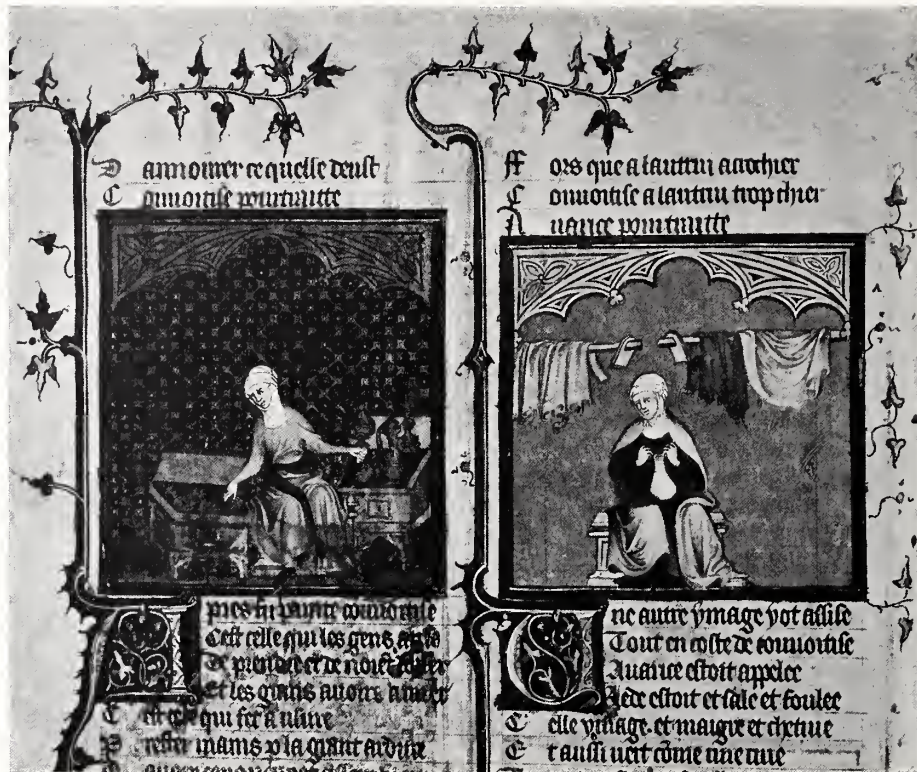 D ce quelle deust
C ouuoitise pourtraitte
A pres fu painte couuoitise
Cest celle qui les gens atise
De prendre et de noient donner
Et les grans auoirs
C est celle qui fet a usure
P rester mains p la grant ardure
F ors que a lautrui acrochier
C ouuoitise a lautrui trop chier
A uarice pourtraitte
U ne autre ymage y ot assise
Tout en coste de couuoitise
Auarice estoit appelee
Lede estoit et sale et foulee
C elle ymage et maigre et chetiue
E t aussi uert come une ciue